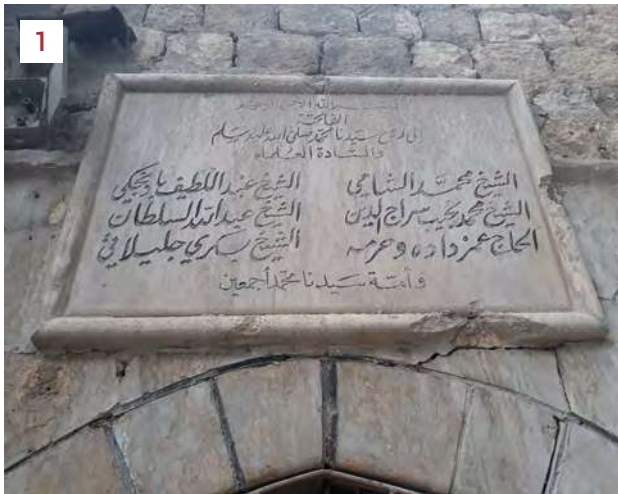 1
بسم الله الرحمن الرحيم
الفاتحة
إلى روح سيدنا محمد صلى الله عليه وسلم
والسادة العلماء
الشيخ محمد الشامي
الشيخ محمد نجيب سراج الدين
الحاج عمر داده وحرمه
الشيخ عبد اللطيف
الشيخ عبد الله السلطان
الشيخ بكري
وأمة سيدنا محمد أجمعين